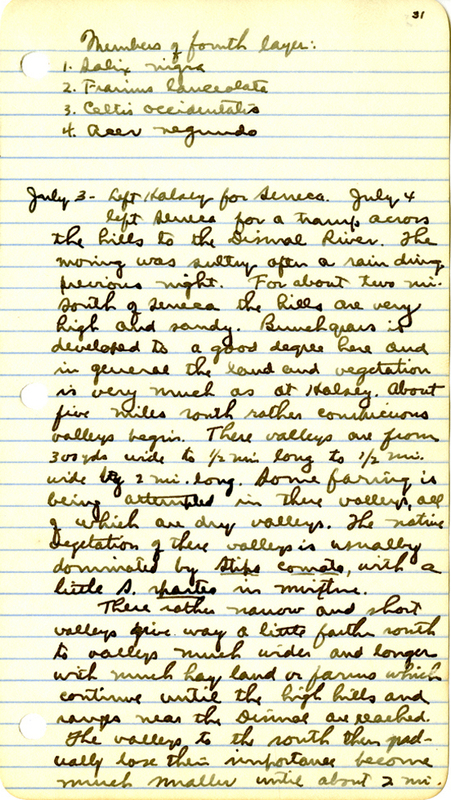 31
Members of fourth layer:
1. Salix nigra
2. Fraxinus lanceolata
3. Celtis occidentalis
4. Acer negundo
July 3 - Left Halsey for Seneca. July 4
left Seneca for a tramp across
the hills to the Dismal River. The
morning was sultry after a rain during
previous night. For about two mi.
south of Seneca the hills are very
high and sandy. Bunchgrass is
developed to a good degree here and
in general the land and vegetation
is very much as at Halsey. About
five miles south rather conspicuous
valleys begin. These valleys are from
300 yds wide to 1/2 mi long to 1/2 mi.
wide by 2 mi. long. Some farming is
being attempted in these valleys, all
of which are dry valleys. The native
vegetation of these valleys is usually
dominated by Stipa comata, with a
little S. spartea in mixture.
These rather narrow and short
valleys give way a little farther south
to valleys much wider and longer
with much hay land or farms which
continue until the high hills and
ranges near the Dismal are reached.
The valleys to the south then grad-
ually lose their importance become
much smaller until about 2 mi.